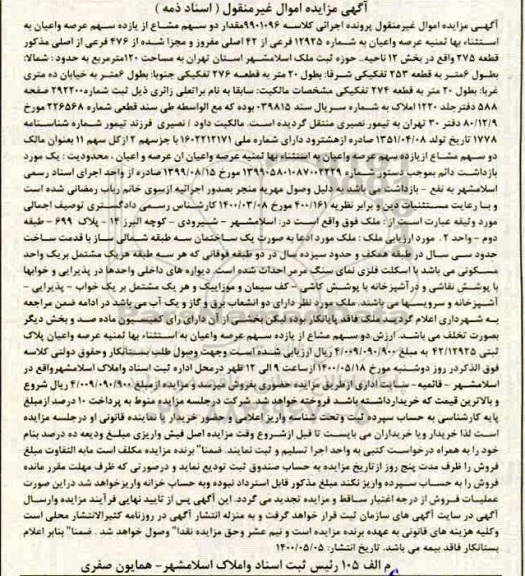 آگهی مزایده اموال غیرمنقول ( اسناد ذمه )
آگهی مزایده اموال غیرمنقول پرونده اجرائی کلاسه ۹۹۰۱۰۹۶مقدار دو سهم مشاع از یازده سهم عرصه واعیان به
استثناء بها ثمنیه عرصه واعیان به شماره ۱۲۹۲۵ فرعی از ۴۲ اصلی مفروز و مجزا شده از ۴۷۶ فرعی از اصلی مذکور
قطعه ۲۷۵ واقع در بخش ۱۲ ناحیه.. حوزه ثبت ملک اسلامشهر استان تهران به مساحت ۱۲۰مترمربع به حدود : شمالا:
بطول ۶متر به قطعه ۲۵۳ تفکیکی شرقا: بطول ۲۰ متر به قطعه ۲۷۶ تفکیکی جنوبا: بطول ۶متر به خیابان ده متری
غربا: بطول ۲۰ متر به قطعه ۲۷۴ تفکیکی مشخصات مالکیت: سابقا به نام براتعلی زائری ذیل ثبت شماره۲۹۲۲۰۰ صفحه
۵۸۸ دفترجلد ۱۲۲۰ املاک به شماره سریال سند ۰۳۹۸۱۵ بوده که مع الواسطه طی سند قطعی شماره ۲۲۶۵۶۸ مورخ
۸۰/۱۲/۹ دفتر ۳۰ تهران به تیمور نصیری منتقل گردیده است. مالکیت داود / نصیری فرزند تیمور شماره شناسنامه
۱۷۷۸ تاریخ تولد ۱۳۵۱/۰۴/۰۸ صادره ازهشترود دارای شماره ملی ۱۶۰۲۲۱۲۱۷۱ با جزسهم ۲ ازکل سهم ۱۱ بعنوان مالک
دو سهم مشاع ازیازده سهم عرصه واعیان به استثناء بها ثمنیه عرصه واعیان ان عرصه و اعیان ، محدودیت : یک مورد
بازداشت دائم بموجب دستور شماره ۱۳۹۹۰۵۸۰۱۰۸۷۰۰۲۲۲۹ مورخ ۱۳۹۹/۰۸/۱۵ صادره از واحد اجرای اسناد رسمی
اسلامشهر به نفع - بازداشت می باشد به دلیل وصول مهریه منجر بصدور اجرائیه ازسوی خانم رباب رمضانی شده است
و بـا رعایت مستثنیات دین و برابر نظریه ۴۰۰/۱۶۱ مورخ ۱۴۰۰/۰۳/۰۸ کارشناس رسمی دادگستری توصیف اجمالی
مورد وثیقه عبارت است از: ملک فوق واقع است در: اسلامشهر - شیرودی - کوچه البرز ۱۴ - پلاک ۶۹۹ - طبقه
دوم - واحد ۲ . مورد ارزیابی ملک : ملک مورد ادعا به صورت یک ساختمان سه طبقه شمالی ساز با قدمت ساخت
حدود سی سال در طبقه همکف و حدود سیزده سال در دو طبقه فوقانی که هر سه طبقه هریک مشتمل بریک واحد
مسکونی می باشد با اسکلت فلزی نمای سنگ مرمر احداث شده است دیواره های داخلی واحدها در پذیرایی و خوابها
با پوشش نقاشی و درآشپزخانه با پوشش کاشی - کف سیمان و موزاییک و هر یک مشتمل بر یک خواب - پذیرایی -
آشپزخانه و سرویسها می باشند. ملک مورد نظر دارای دو انشعاب برق و گاز و یک آب می باشد در ادامه ضمن مراجعه
به شهرداری اعلام گردید ملک فاقد پایانکار بوده لیکن بخشی از آن دارای رای کمیسیون ماده صد و بخش دیگر
بصورت تخلف می باشد. ارزش دو سهم مشاع از یازده سهم عرصه واعیان به استثناء بها ثمنیه عرصه واعیان پلاک
ثبتی ۴۲/۱۲۹۲۵ به مبلغ ۴/۰۰۹/۰۹۰/۹۰۰ ریال ارزیابی شده است وجهت وصول طلب بستانکار وحقوق دولتی کلاسه
فوق الذکردر روز دوشنبه مورخ ۱۴۰۰/۰۵/۱۸ ازساعت ۹ الی ۱۲ ظهر درمحل اداره ثبت اسناد واملاک اسلامشهرواقع در
اسلامشهر - قائمیه - سایت اداری ازطریق مزایده حضوری بفروش میرسد و مزایده ازمبلغ ۴/۰۰۹/۰۹۰/۹۰۰ ریال شروع
و بالاترین قیمت که خریدارداشته باشد فروخته خواهد شد. شرکت درجلسه مزایده منوط به پرداخت ۱۰ درصد ازمبلغ
پایه کارشناسی به حساب سپرده ثبت وتحت شناسه واریز اعلامی و حضور خریدار یا نماینده قانونی او درجلسه مزایده
است لذا خریدار ویا خریداران می بایست تا قبل ازشروع وقت مزایده اصل فیش واریزی مبلغ ودیعه ده درصد بنام
خود را به همراه درخواست کتبی به واحد اجرا تسلیم و ثبت نمایند. ضمنا" برنده مزایده مکلف است مابه التفاوت مبلغ
فروش را ظرف مدت پنج روز ازتاریخ مزایده به حساب صندوق ثبت تودیع نماید و درصورتی که ظرف مهلت مقرر مانده
فروش را به حساب سپرده واریز نکند مبلغ مذکور قابل استرداد نبوده وبه حساب خزانه واریزخواهد شد دراین صورت
عملیات فروش از درجه اعتبار ساقط و مزایده تجدید می گردد. این آگهی پس از تایید نهایی فرآیند مزایده وارسال
آگهی در سایت آگهی های سازمان ثبت قرار خواهد گرفت و به منزله انتشار آگهی در روزنامه کثیرالانتشار محلی است
وکلیه هزینه های قانونی به عهده برنده مزایده است و نیم عشر وحق مزایده نقدا" وصول خواهد شد . ضمنا" بنابر اعلام
بستانکار فاقد بیمه می باشد. تاریخ انتشار: ۱۴۰۰/۰۵/۰۵
م الف ۱۰۵ رئیس ثبت اسناد واملاک اسلامشهر- همایون صفری